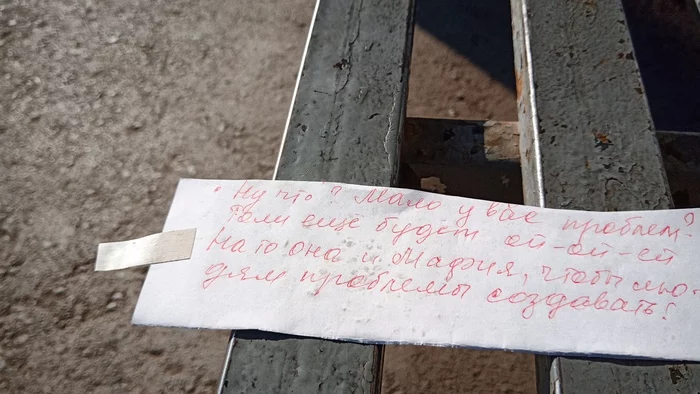 • Ну что? Мало у вас проблем?
То ли ещё будет ой-ой-ей
На то она и Мафия, чтобы лю-
дям проблемы создавать!